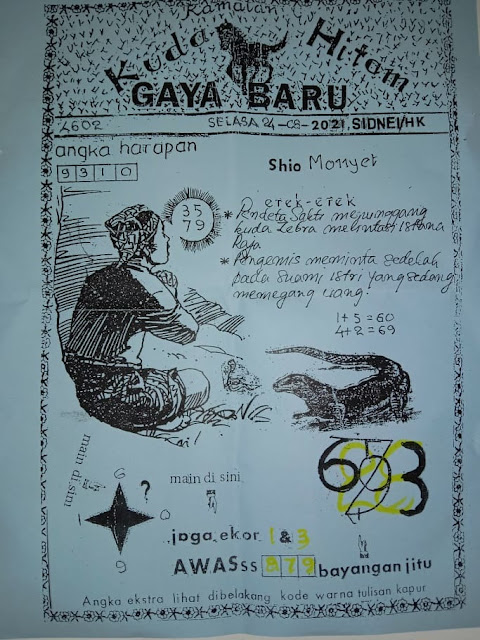 Ramalan
Kuda Hitam
GAYA BARU
4602
SELASA 24-08-2021. SIDNEI/HK
angka harapan
9310
Shio Monyet
erek-erek
35
79
* Pendeta Sakti menunggang
kuda Zebra melintasi istana
Raja
* Pengemis meminta sedekah
pada suami istri yang sedang
memegang uang.
1+5=60
4+2=69
main disini
6
?
1
0
9
main di sini
683
joga ekor 1 & 3
AWASss 879 bayangan jitu
Angka ekstra lihat dibelakang kode warna tulisan kapur